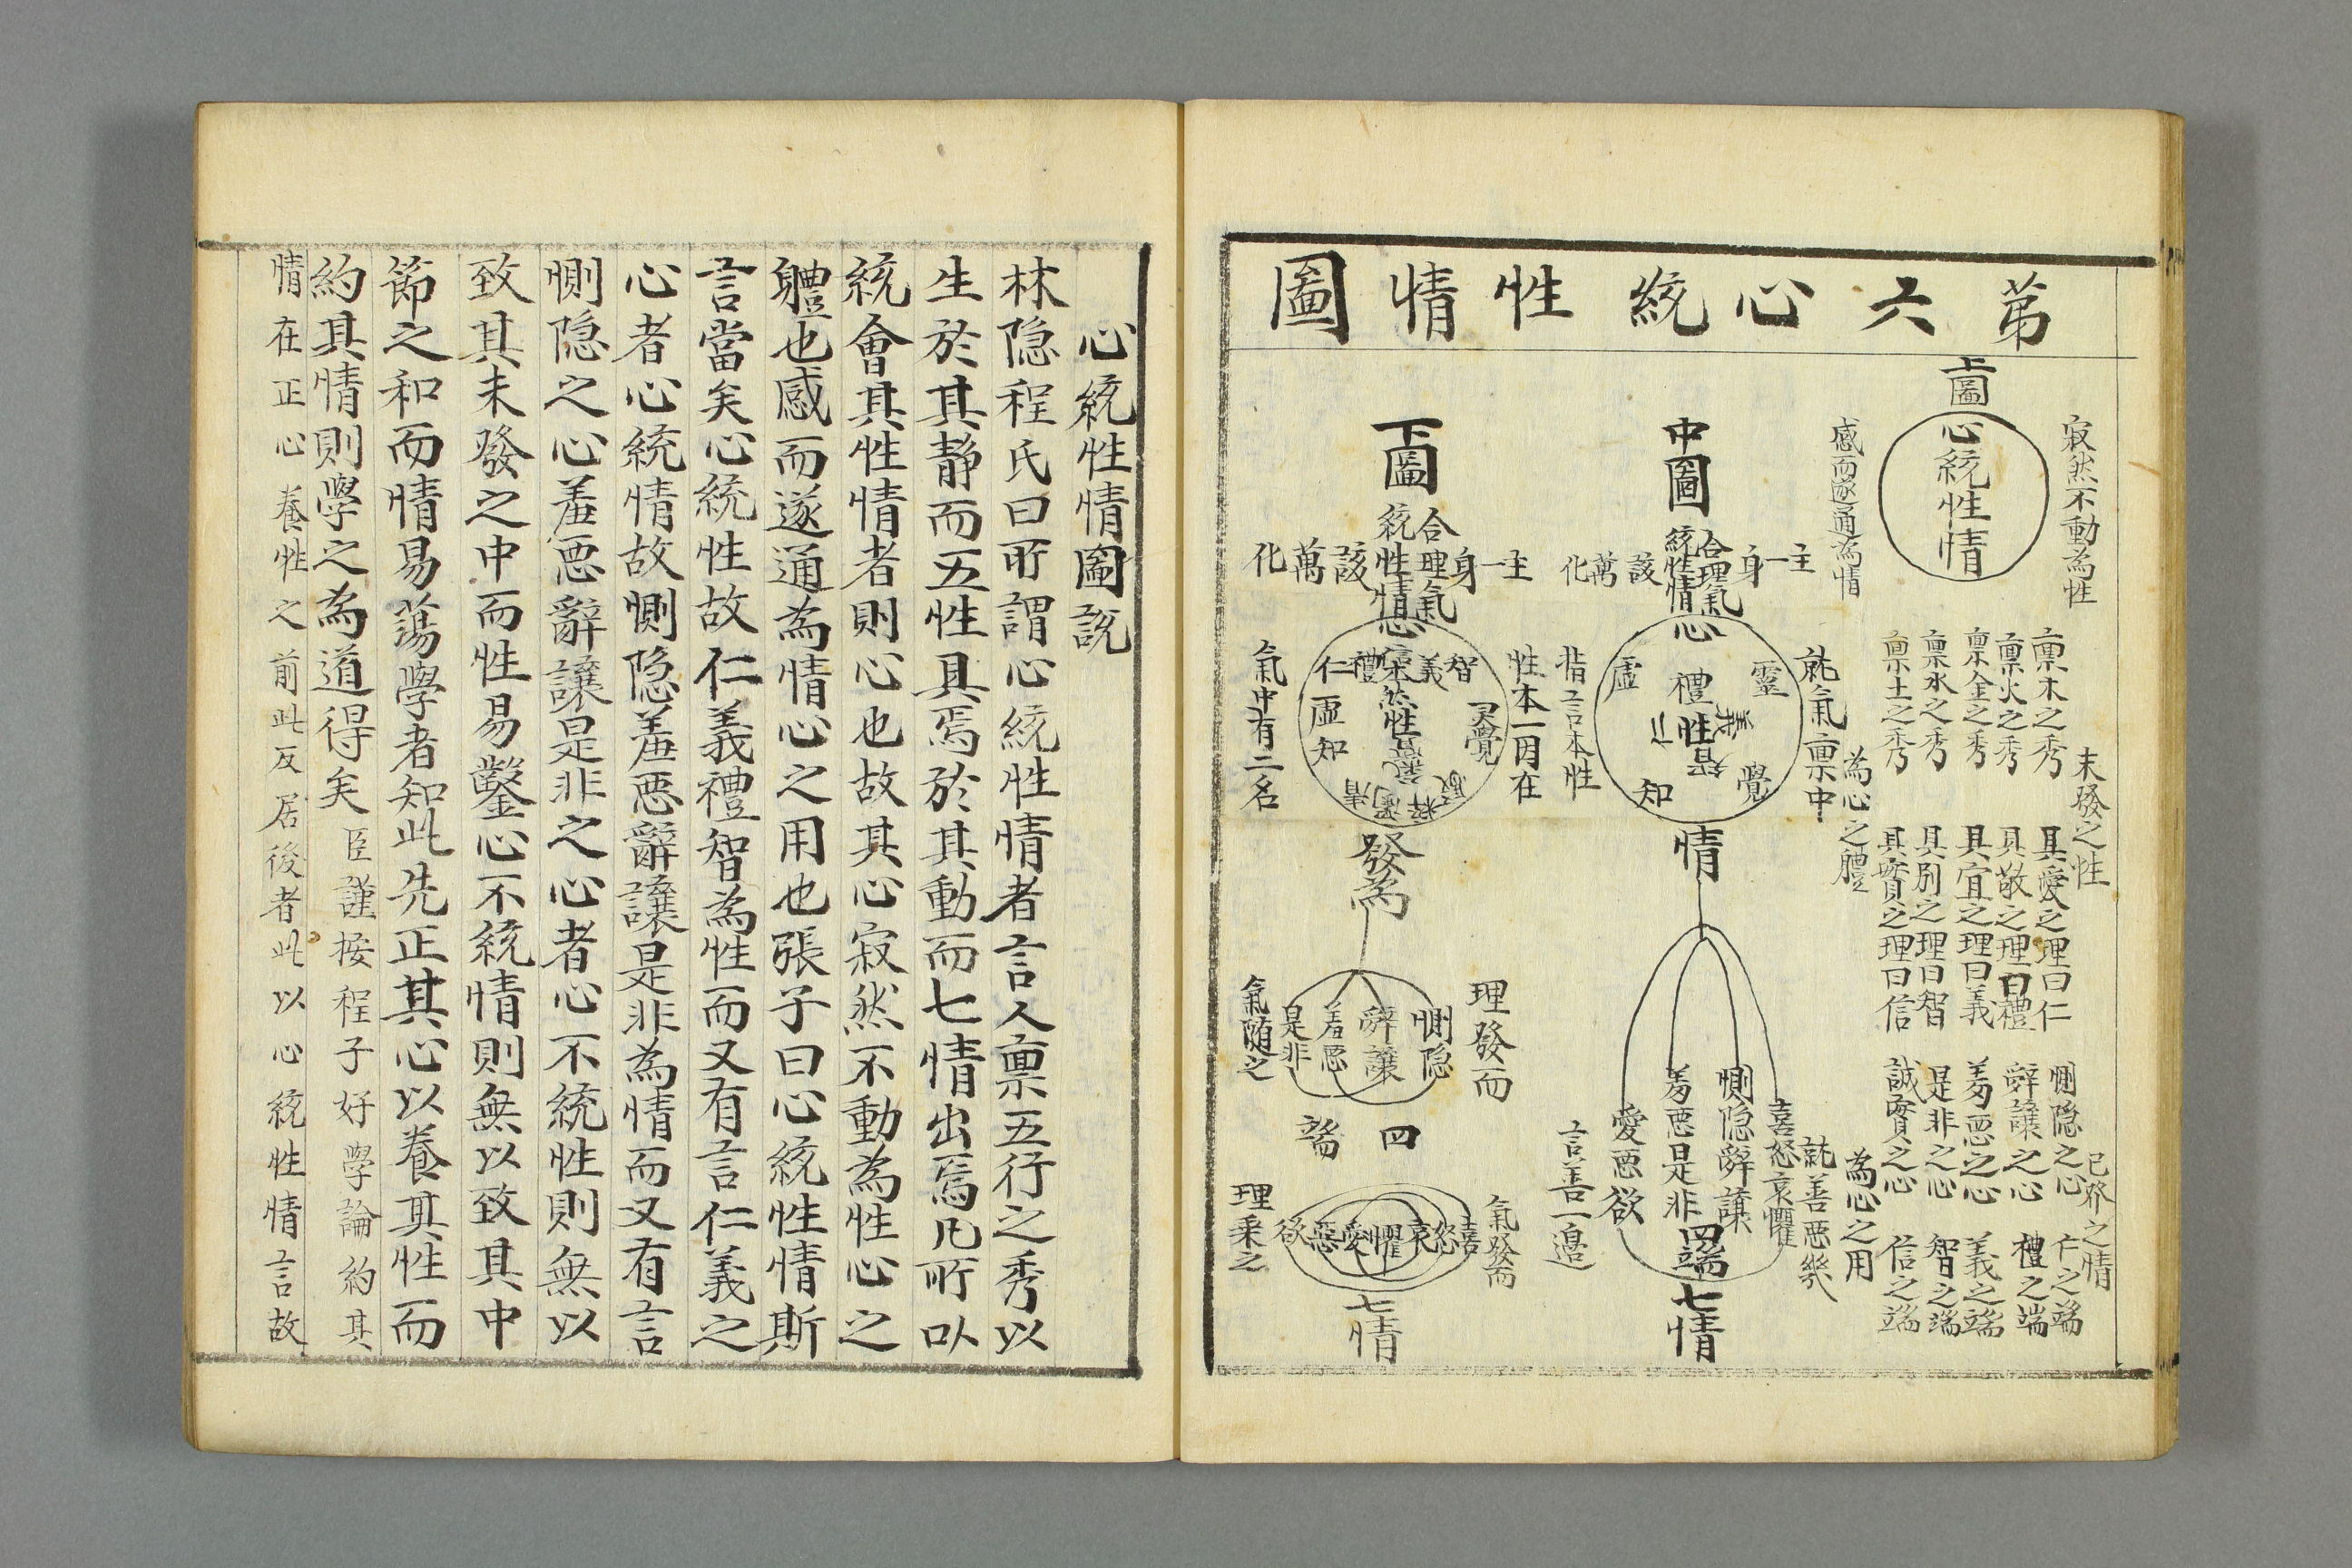 第六心統性情圖
上圖
心統性情
寂然不動為性
感而遂通為情
稟木之秀 具愛之理曰仁 惻隐之心 仁之端
稟火之秀 具敬之理曰禮 辭讓之心 禮之端
稟金之秀 具宜之理曰義 羞惡之心 義之端
稟水之秀 具別之理曰智 是非之心 智之端
稟土之秀 具實之理曰信 誠實之心 信之端
未發之性
為心之軆
已發之情
為心之用
中圖
合理氣
統性情
主一身
該萬化
心
虛靈
知覺
禮
仁性義
智
就氣稟中
指言本性
情
惻隐辭讓
羞惡是非
四端
喜怒哀懼
愛惡欲
就善惡幾
言善一邊
七情
下圖
合理氣
統性情
主一身
該萬化
心
仁禮信義智
本然性
虛靈
知覺
氣質
清濁粹駁
性本一因在
氣中有二名
發為
惻隐
辭讓
羞惡
是非
理發而
氣随之
四端
喜怒哀懼愛惡欲
氣發而
理乘之
七情
心統性情圖説
林隐程氏曰所謂心統性情者言人稟五行之秀以
生於其靜而五性具焉於其動而七情出焉凡所以
統會其性情者則心也故其心寂然不動為性心之
軆也感而遂通為情心之用也張子曰心統性情斯
言當矣心統性故仁義禮智為性而又有言仁義之
心者心統情故惻隐羞惡辭讓是非為情而又有言
惻隐之心羞惡辭讓是非之心者心不統性則無以
致其未發之中而性易鑿心不統情則無以致其中
節之和而情易蕩學者知此先正其心以養其性而
約其情則學之為道得矣臣謹按程子好學論約其
情在正心養性之前此反居後者此以心統性情言故